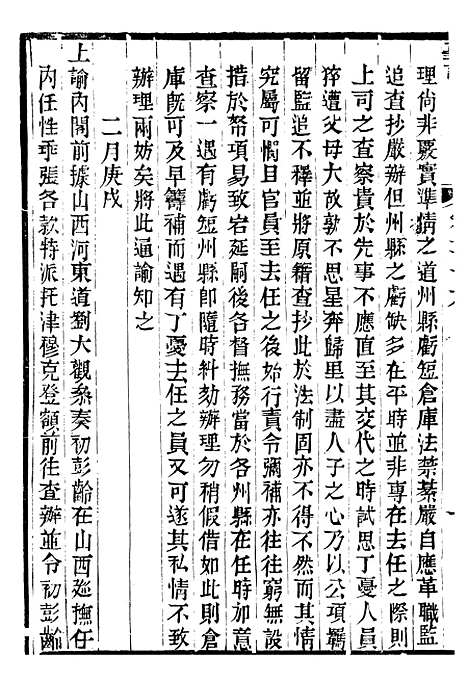 理尚非覈實準情之道州縣虧短倉庫法禁綦嚴自應革職監
追查抄嚴辦但州縣之虧缺多在平時並非專在去任之際則
上司之查察貴於先事不應直至其交代之時試思丁憂人員
猝遭父母大故孰不思星奔歸里以盡人子之心乃以公項羈
留監追不釋並將原籍查抄此於法制固亦不得不然而其情
究屬可憫且官員去任之後始行責令彌補亦往往窮無設
措於帑項易致宕延嗣後各督撫務當於各州縣在任時加意
查察一遇有虧短州縣卽隨時糾劾辦理勿稍假借如此則倉
庫旣可及早籌補而遇有丁憂去任之員又可遂其私情不致
辦理兩妨矣將此通諭知之
二月庚戌
上諭內閣前據山西河東道劉大觀叅奏初彭齡在山西廵撫任
內任性乖張各款特派托津穆克登額前往查辦並令初彭齡